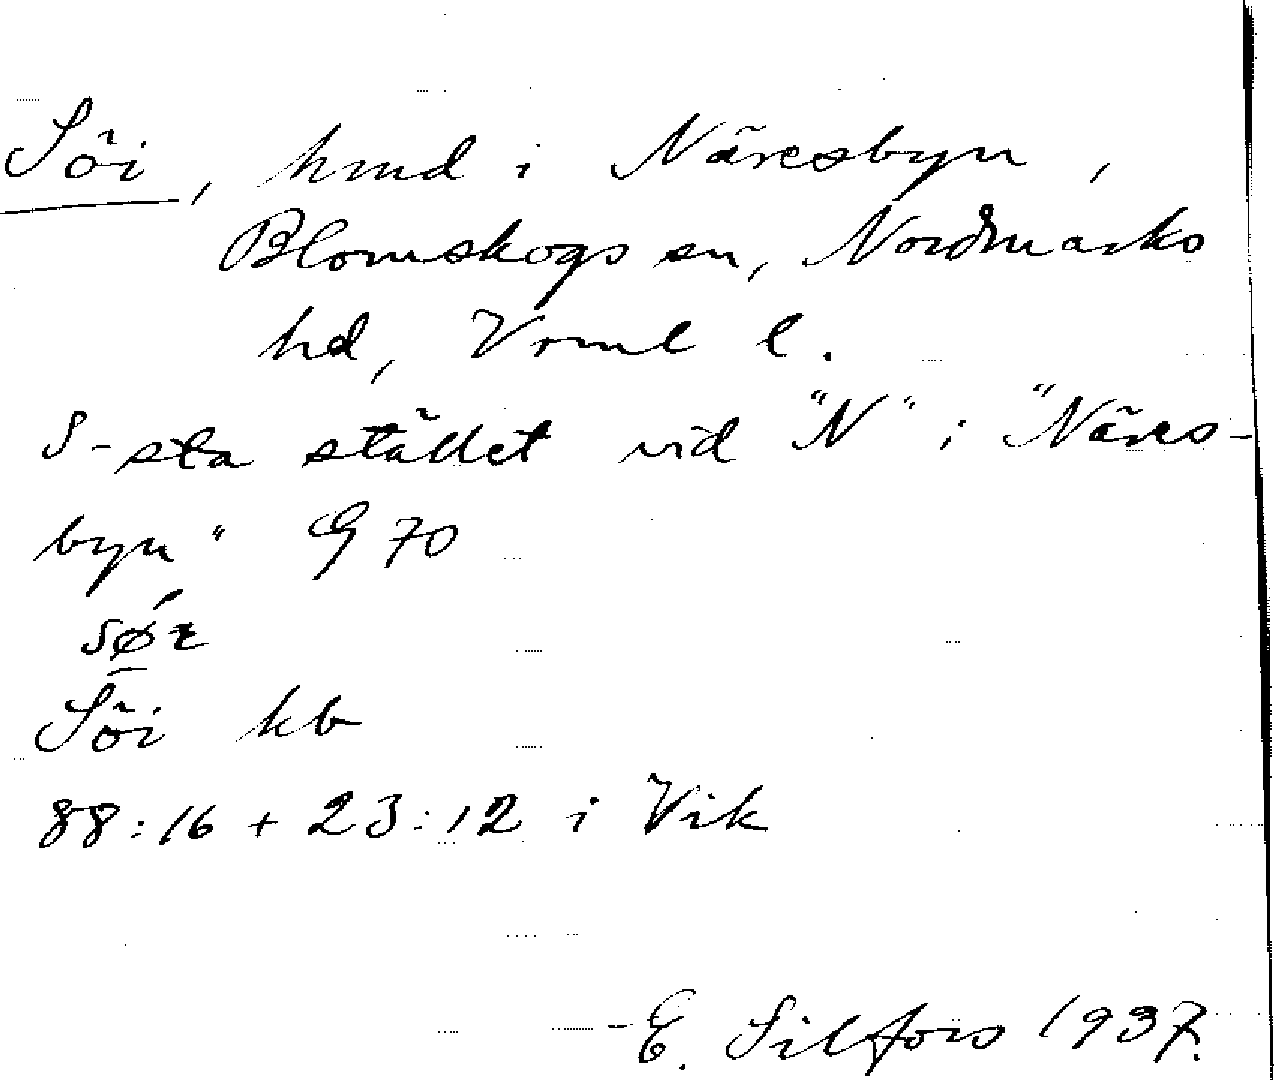 Söi, hmd i Näresbyn,
Blomskogs sn, Nordmarks
hd, Vrml l.
S-sta stället vid "N" i "Näres-
byn" G 70
Söi kb
88:16 + 23:12 i Vik
E. Silfors 1937.